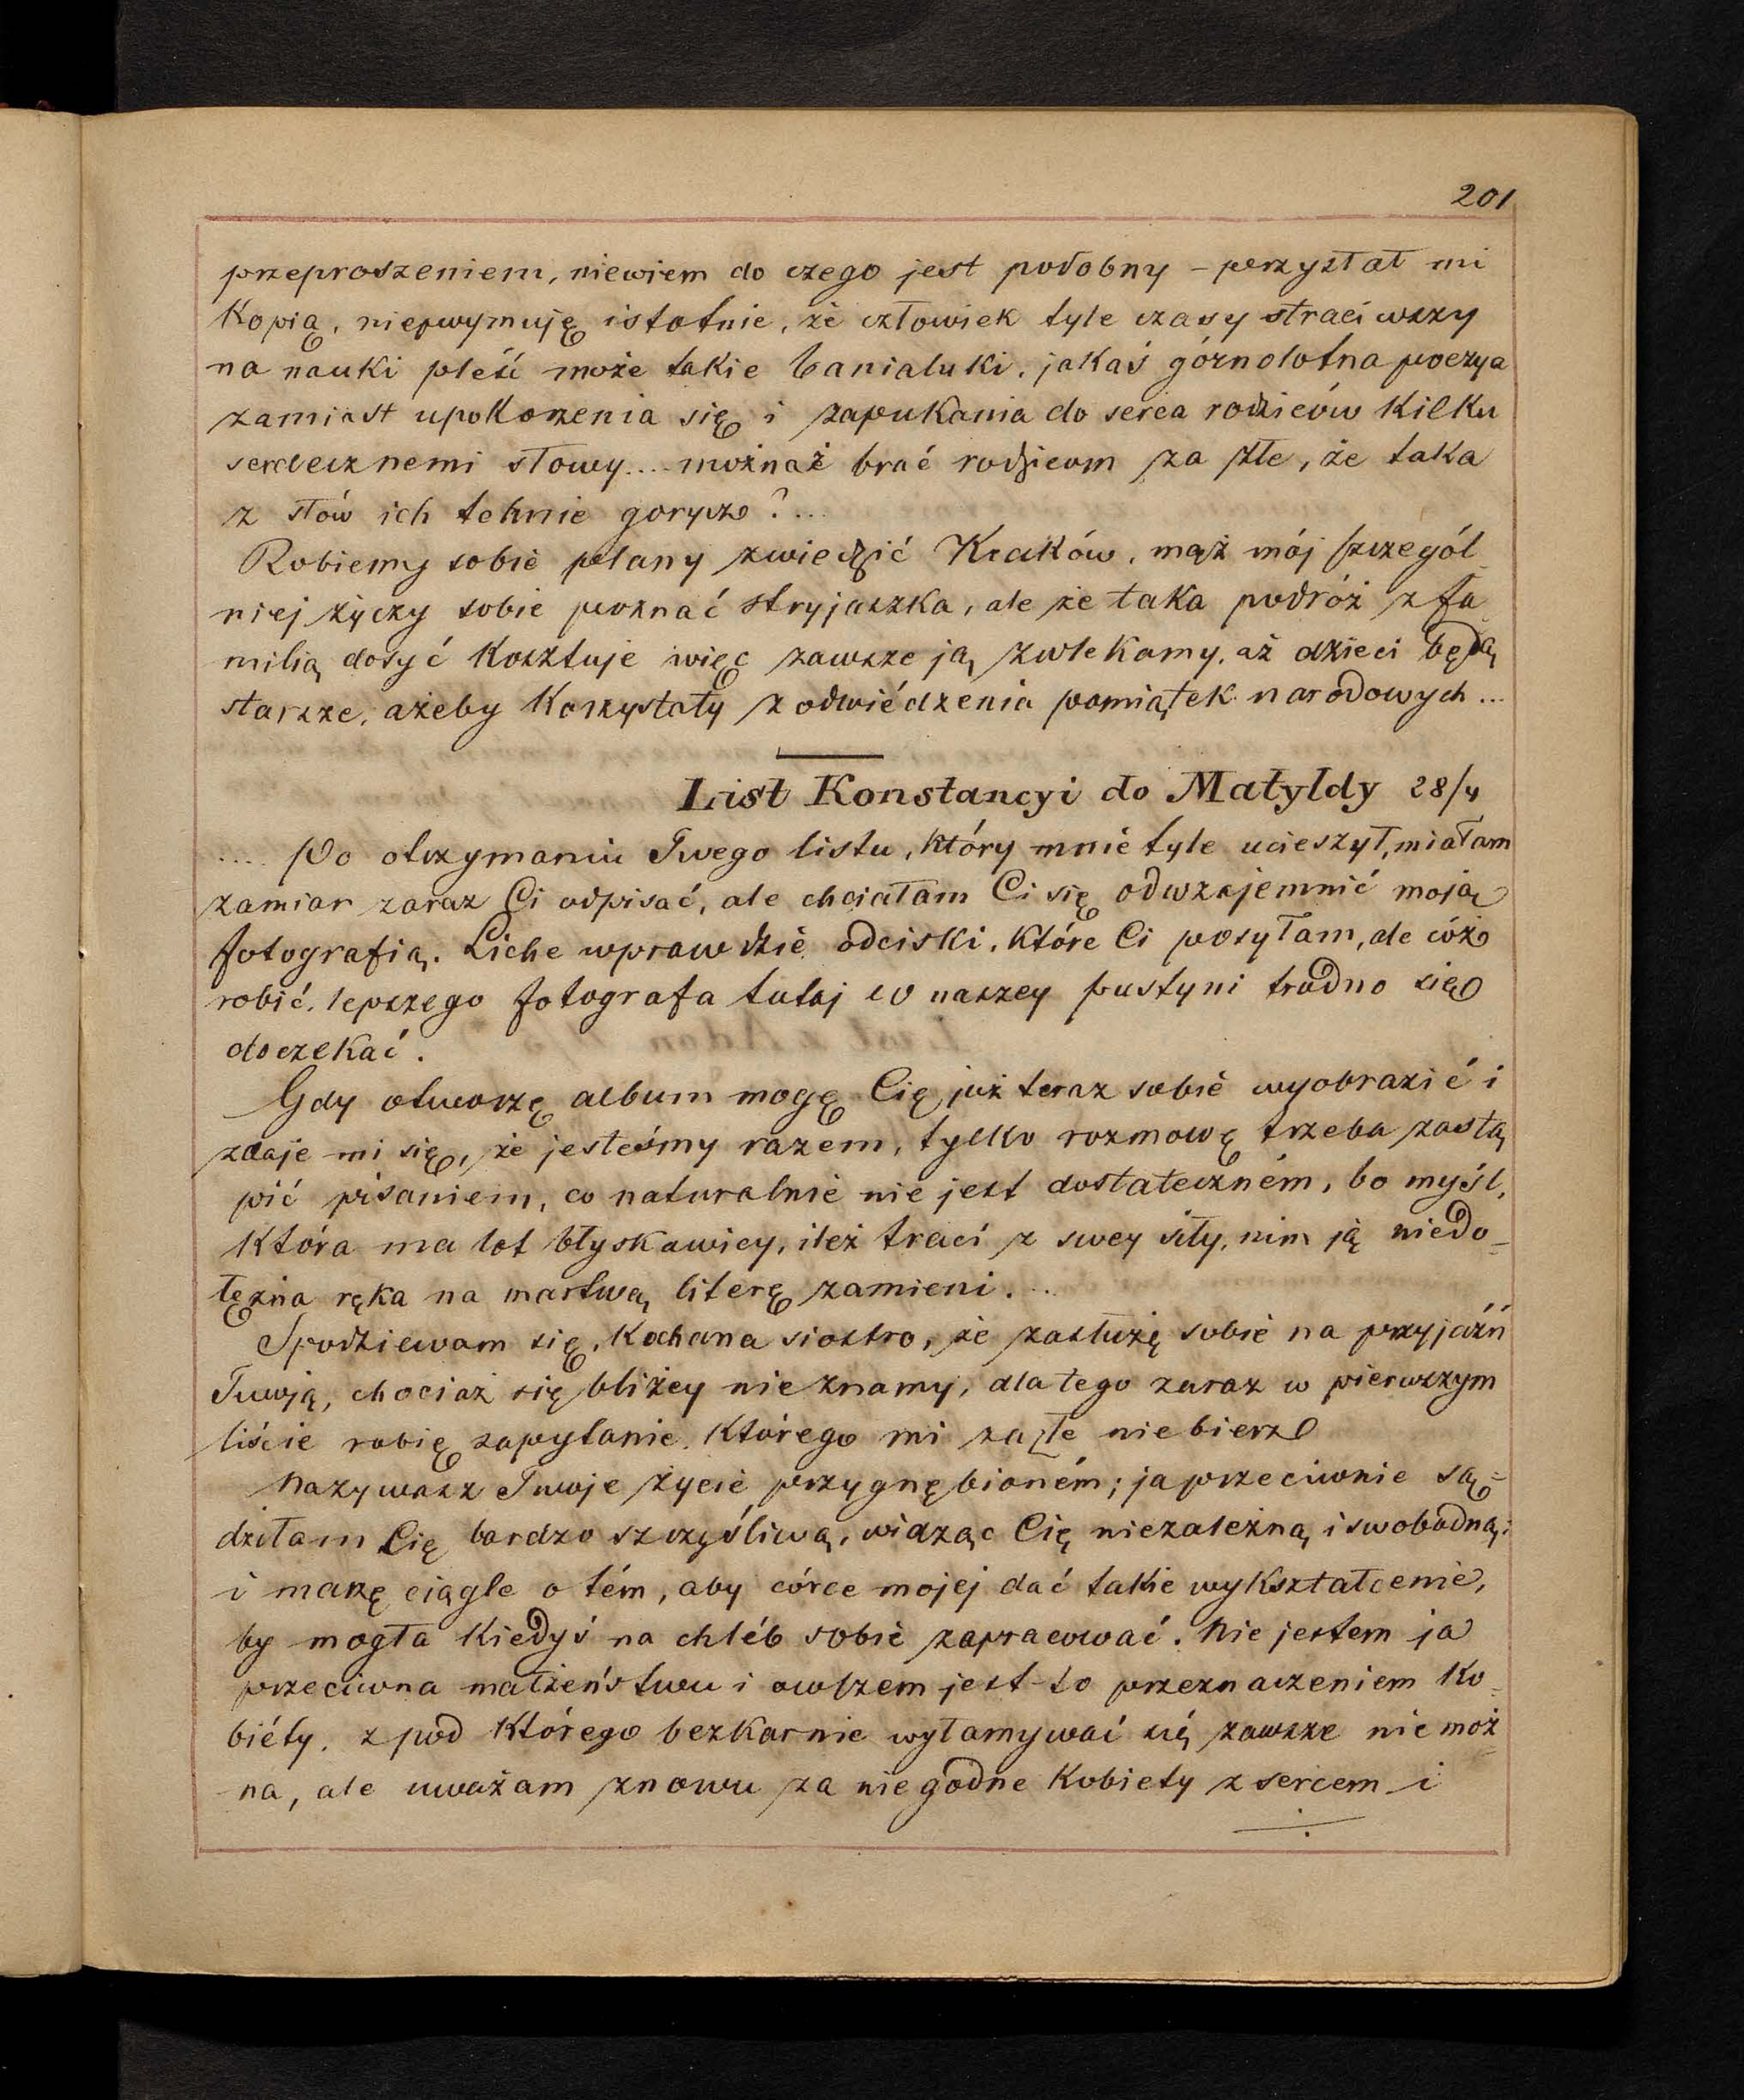 201
przeproszeniem, niewiem do czego jest podobny – przysłał mi
Kopią, niepojmuję istotnie, że człowiek tyle czasu straciwszy
na nauki pleść może takie banialuki, jakaś górnolotna poezya
zamiast upokorzenia się i zapukania do serca rodziców kilku
serdecznemi słowy.... możnaż brać rodzicom za złe, że taka
z słów ich tchnie gorycz?...
Robiemy sobie plany zwiedzić Kraków, mąż mój szczegól_
niej życzy sobie poznać stryjaszka, ale że taka podróż z fa
milią dosyć kosztuje więc zawsze ją zwlekamy, aż dzieci będą
starsze, ażeby korzystały z odwiédzenia pomiątek narodowych...
List Konstancyi do Matyldy 28/4
.... Po otrzymaniu Twego listu, który mnie tyle ucieszył, miałam
zamiar zaraz Ci odpisać, ale chciałam Ci się odwzajemnić moją
fotografią. Liche wprawdzie odciski, które Ci posyłam, ale cóż
robić, lepszego fotografa tutaj w naszey pustyni trudno się
doczekać.
Gdy otworzę album mogę Cię już teraz sobie wyobrazić i
zdaje mi się, że jesteśmy razem, tylko rozmowę trzeba zastą
pić pisaniem, co naturalnie nie jest dostateczném, bo myśl,
która ma lot błyskawicy, ileż traci z swey siły, nim ją niedo_
łężna ręka na martwą literę zamieni...
Spodziewam się, Kochana siostro, że zasłużę sobie na przyjaźń
Twoją, chociaż się bliżey nie znamy, dlatego zaraz w pierwszym
liście robię zapytanie, którego mi za złe nie bierz
Nazywasz Twoje życie przygnębioném; ja przeciwnie są=
dziłam Cię bardzo szczęśliwą, widząc Cię niezależną i swobodną;
i marzę ciągle o tém, aby córce mojej dać takie wykształcenie,
by mogła kiedyś na chléb sobie zapracować. Nie jestem ja
przeciwna małżeństwu i owszem jest to przeznaczeniem Ko_
biéty, z pod którego bezkarnie wyłamywać się zawsze nie moż
na, ale uważam znowu za niegodne Kobiety z sercem i